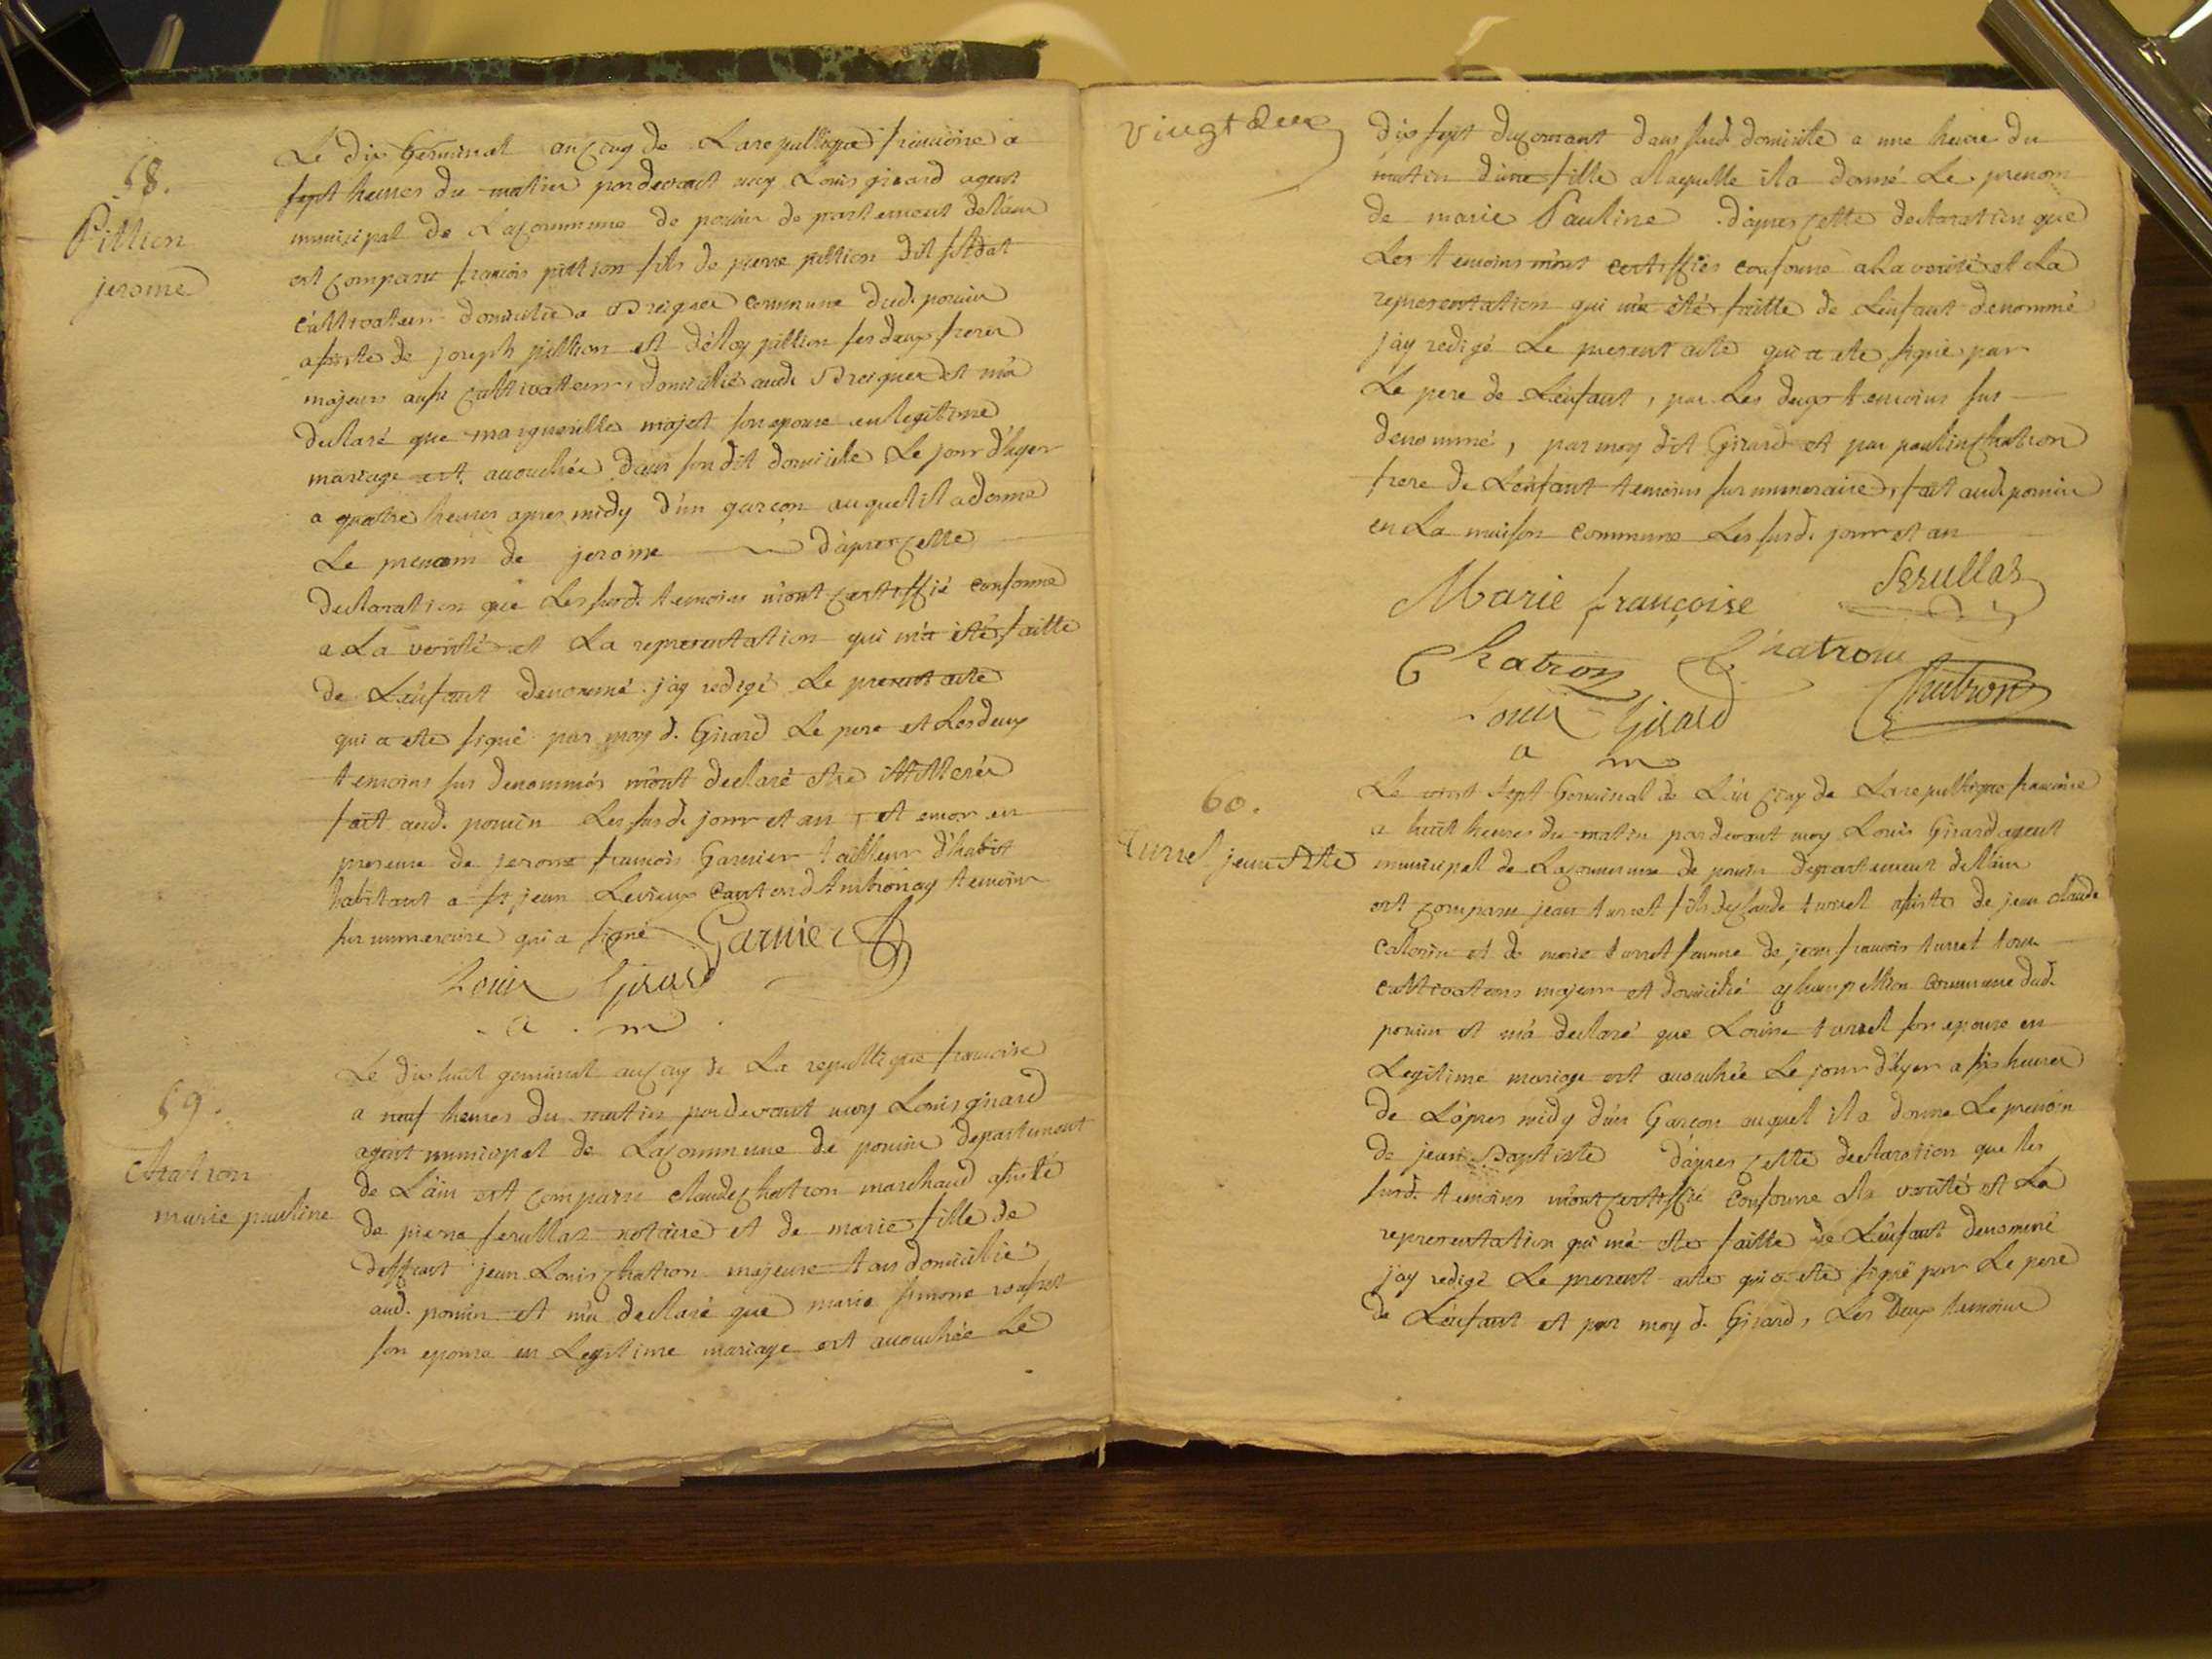 58.
Pittion
jerome
Le dix Germinal an cinq de La republique francoise a
sept heures du matin pardevant moy Louis girard agent
municipal de La commune de poncin departement de L'ain
est comparu francois pittion fils de pierre pittion dit soldat
cultivateur domicilié a Breignes commune dud. poncin
assisté de joseph pittion et d'éloy pittion ses deux freres
majeurs aussi cultivateurs domicilié aud. Breignes et m'a
declaré que margueritte majot son epouse en legitime
mariage est accouchée dans son dit domicile Le jour d'hyer
a quatre heures apres midy d'un garcon auquel il a donné
Le prenom de jerome d'apres cette
declaration que Les susd. temoins m'ont certiffié conforme
a La verité et La representation qui m'a été faitte
de L'enfant denommé j'ay redigé Le present acte
qui a eté signé par moy d. Girard Le pere et Les deux
temoins sus denommés m'ont declaré etre illiterés
fait aud. poncin Les susd. jour et an et encor en
presence de jerome francois Garnier tailleur d'habit
habitant a St jean Levieux canton d'Ambronay temoin
surnumeraire qui a signé Garnier
Louis Girard
a m
59.
Chatron
marie pauline
Le dix huit germinal an cinq de La republique francoise
a neuf heures du matin pardevant moy Louis girard
agent municipal de La commune de poncin departement
de L'ain est comparu claude chatron marchaud assisté
de pierre serullaz notaire et de marie fille de
deffunt jean Louis chatron majeure tous domicilié
aud. poncin et m'a declaré que marie simone
son epouse en Legitime mariage est accouchée Le
vingt deux
dix sept du courant dans susd. domicile a une heure du
matin d'une fille a laquelle il a donné Le prenom
de marie Pauline d'apres cette declaration que
Les temoins m'ont certiffiés conforme a La verité et La
representation qui m'a été faitte de L'enfant denommé
j'ay redigé Le present acte qui a eté signé par
Le pere de L'enfant, par Les deux temoins sus
denommé, par moy dit Girard et par paulin chatron
frere de L'enfant temoins surnumeraire, fait aud. poncin
en La maison commune Les susd. jour et an
Marie françoise Serullaz
Chatron Chatron
Louis Girard Chatron
a m
60.
Turrel jean Bte
Le vint sept Germinal de L'an cinq de La republique francoise
a huit heures du matin pardevant moy Louis Girard agent
municipal de La commune de poncin departement de L'ain
est comparu jean turrel fils de claude turrel assisté de jean claude
et de marie turrel femme de jean francois turrel tous
cultivateurs majeurs et domicilié a commune dud.
poncin et m'a declaré que Louise turrel son epouse en
Legitime mariage est accouchée Le jour d'hyer a six heures
de L'apres midy d'un Garcon auquel il a donné Le prenom
de jean Baptiste d'apres cette declaration que les
susd. temoins m'ont certiffié conforme a La verité et La
representation qui m'a eté faitte de L'enfant denommé
j'ay redigé Le present acte qui a eté signé par Le pere
de L'enfant et par moy d. Girard, Les deux temoins